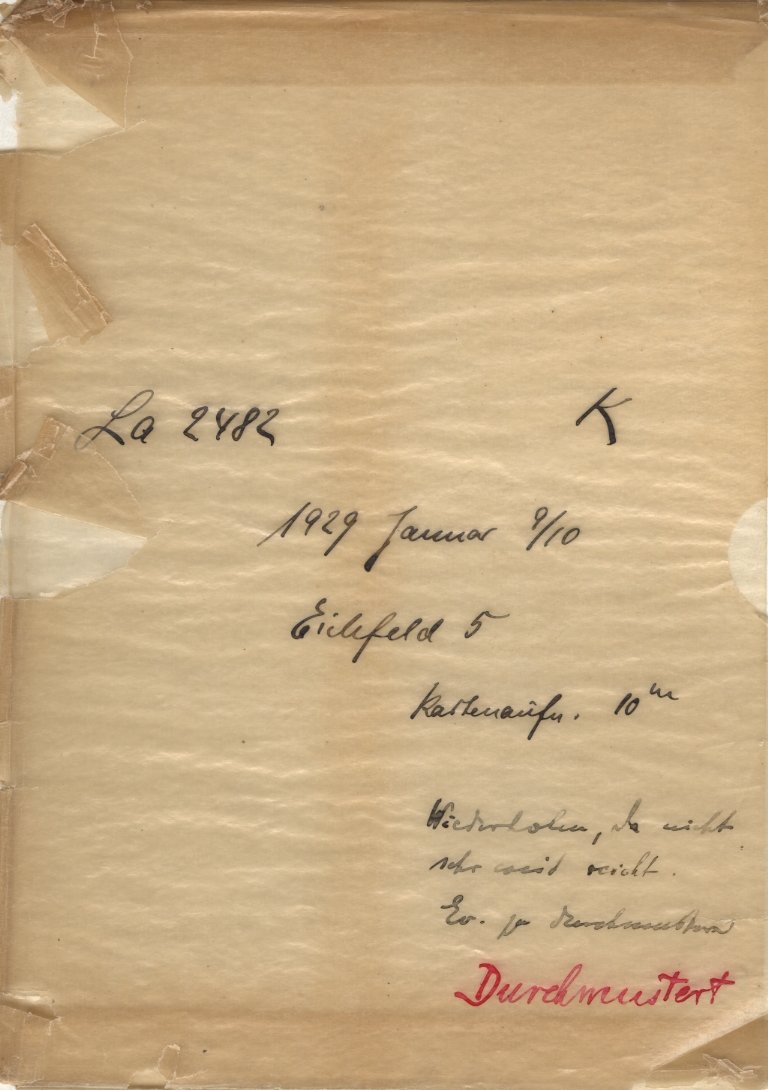 La 2482 K
1929 Januar 9/10
Eichfeld 5
Kartenaufn. 10ᵐ
Wiederholen, da nicht
sehr weit reicht.
Ev. ja durchmustern
Durchmustert